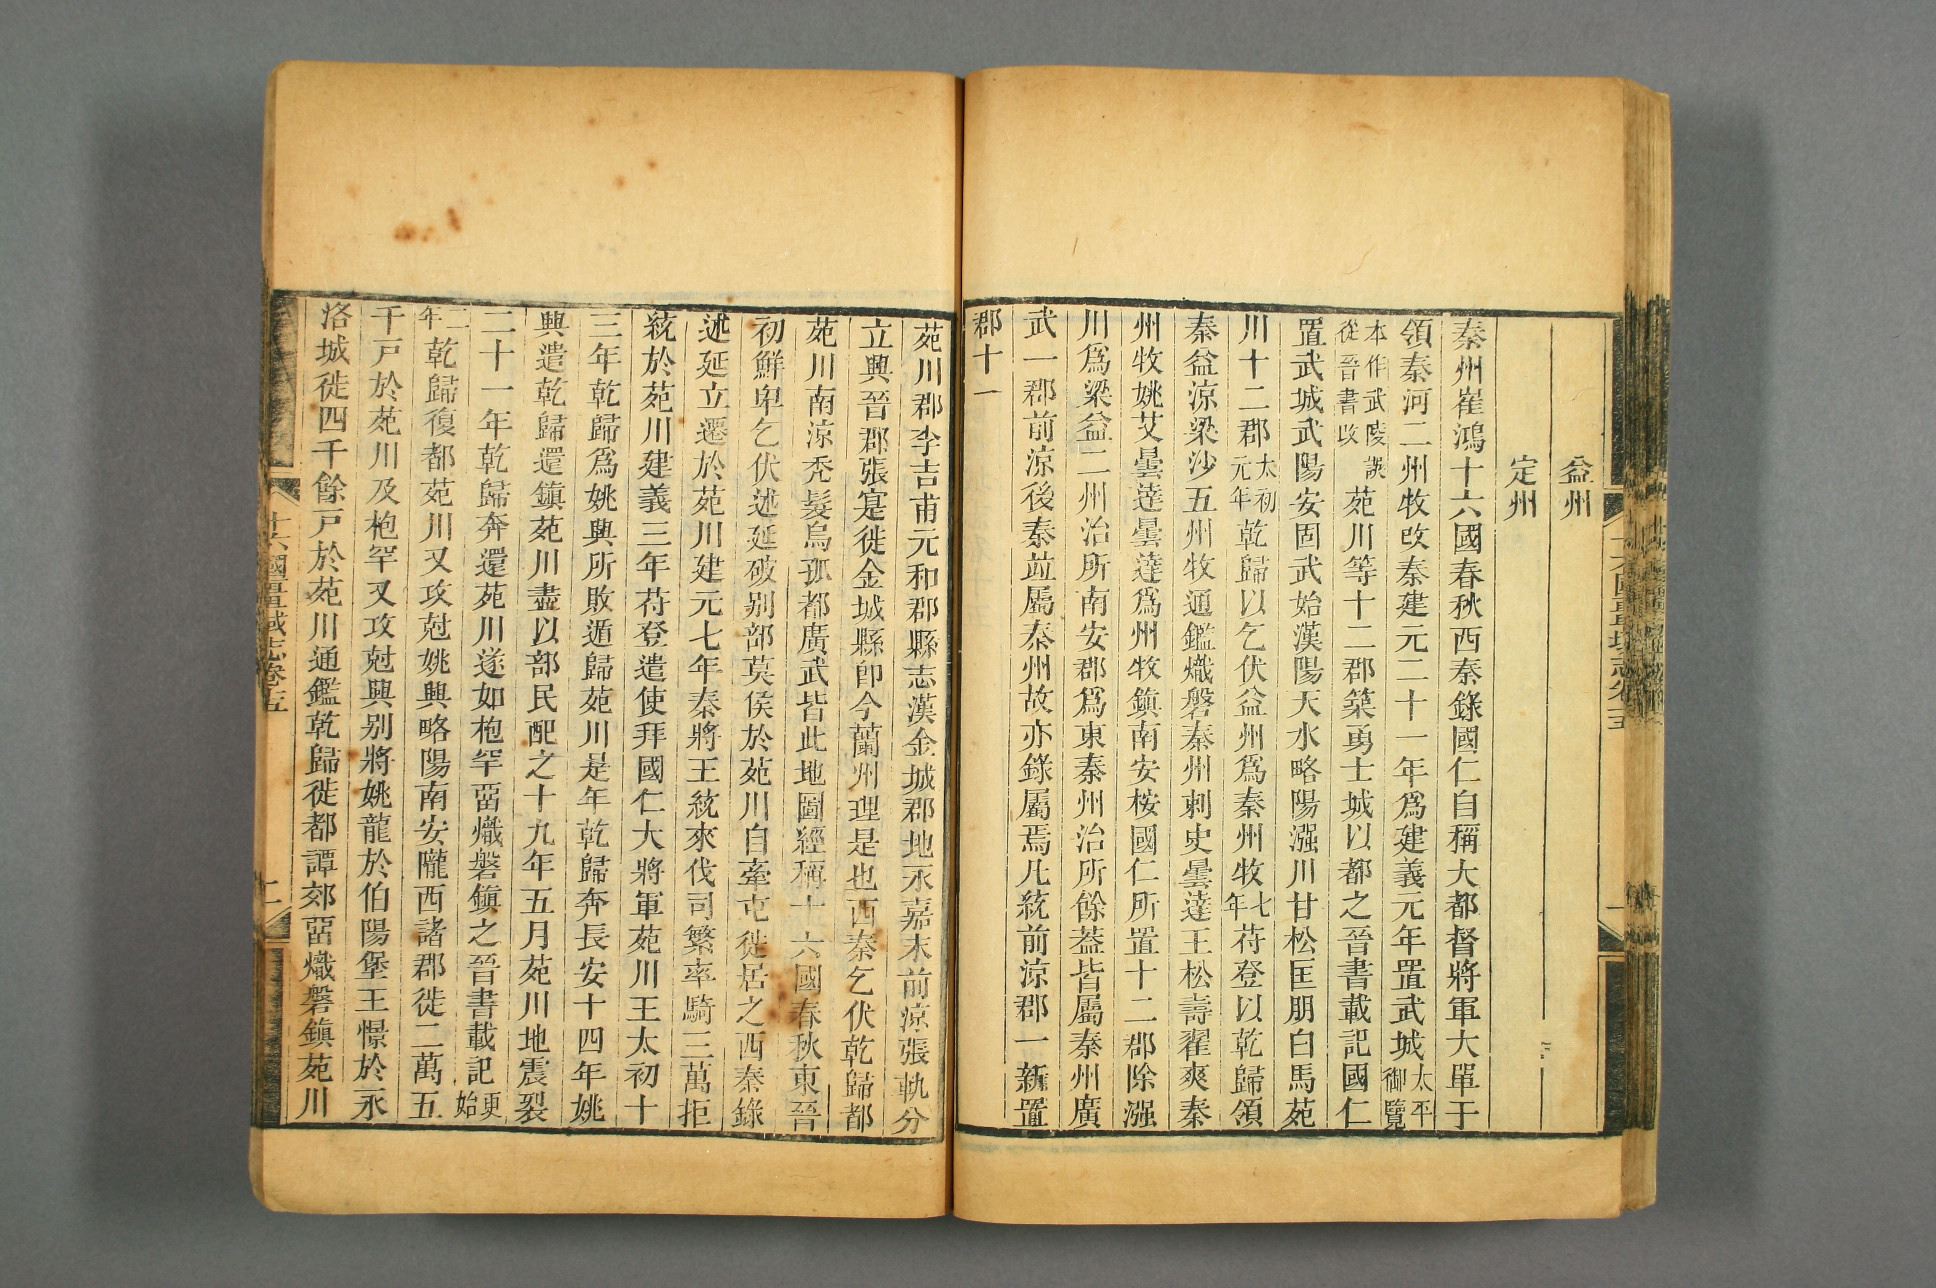 益州
定州
秦州崔鴻十六國春秋西秦錄國仁自稱大都督將軍大單于
領秦河二州牧改秦建元二十一年爲建義元年置武城太平御覽
本作武陵誤從晉書改苑川等十二郡築勇士城以都之晉書載記國仁
置武城武陽安固武始漢陽天水略陽漒川甘松匡朋白馬苑
川十二郡太初元年乾歸以乞伏益州爲秦州牧七年苻登以乾歸領
秦益涼梁沙五州牧通鑑熾磐秦州刺史曇達王松壽翟爽秦
州牧姚艾曇達曇達爲州牧鎮南安桉國仁所置十二郡除漒
川爲梁益二州治所南安郡爲東秦州治所餘蓋皆屬秦州廣
武一郡前涼後秦竝屬秦州故亦錄屬焉凡統前涼郡一新置
郡十一
苑川郡李吉甫元和郡縣志漢金城郡地永嘉末前涼張軌分
立興晉郡張寔徙金城縣卽今蘭州理是也西秦乞伏乾歸都
苑川南涼禿髮烏孤都廣武皆此地圖經稱十六國春秋東晉
初鮮卑乞伏述延破别部莫侯於苑川自牽屯徙居之西秦錄
述延立遷於苑川建元七年秦將王統來伐司繁率騎三萬拒
統於苑川建義三年苻登遣使拜國仁大將軍苑川王太初十
三年乾歸爲姚興所敗遁歸苑川是年乾歸奔長安十四年姚
興遣乾歸還鎮苑川盡以部民配之十九年五月苑川地震裂
二十一年乾歸奔還苑川遂如枹罕畱熾磐鎮之晉書載記更始
二年乾歸復都苑川又攻尅姚興略陽南安隴西諸郡徙二萬五
千戸於苑川及枹罕又攻尅興别將姚龍於伯陽堡王憬於永
洛城徙四千餘戸於苑川通鑑乾歸徙都譚郊畱熾磐鎮苑川
十六國疆域志卷十五
二